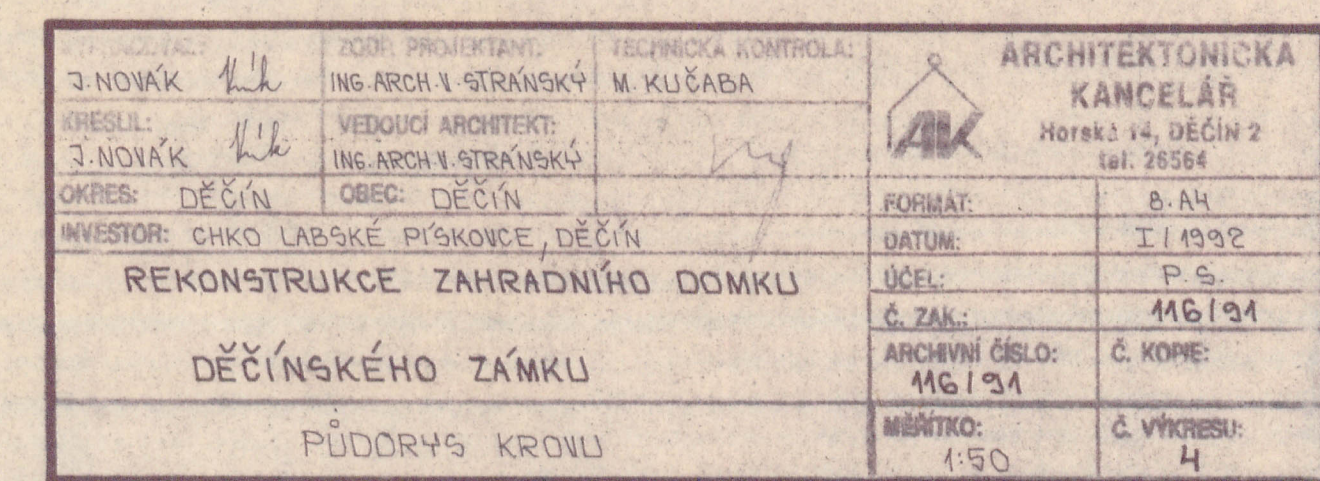 VYPRACOVAL:
J. NOVÁK
ZODP. PROJEKTANT:
ING. ARCH. V. STRÁNSKÝ
TECHNICKÁ KONTROLA:
M. KUČABA
KRESLIL:
J. NOVÁK
VEDOUCÍ ARCHITEKT:
ING. ARCH. V. STRÁNSKÝ
OKRES: DĚČÍN
OBEC: DĚČÍN
INVESTOR: CHKO LABSKÉ PÍSKOVCE, DĚČÍN
REKONSTRUKCE ZAHRADNÍHO DOMKU
DĚČÍNSKÉHO ZÁMKU
PŮDORYS KROVU
AK
ARCHITEKTONICKÁ
KANCELÁŘ
Horská 14, DĚČÍN 2
tel. 26564
FORMÁT: 8. A4
DATUM: I / 1992
ÚČEL: P. S.
Č. ZAK.: 116/91
ARCHIVNÍ ČÍSLO:
116/91
Č. KOPIE:
MĚŘÍTKO:
1:50
Č. VÝKRESU:
4